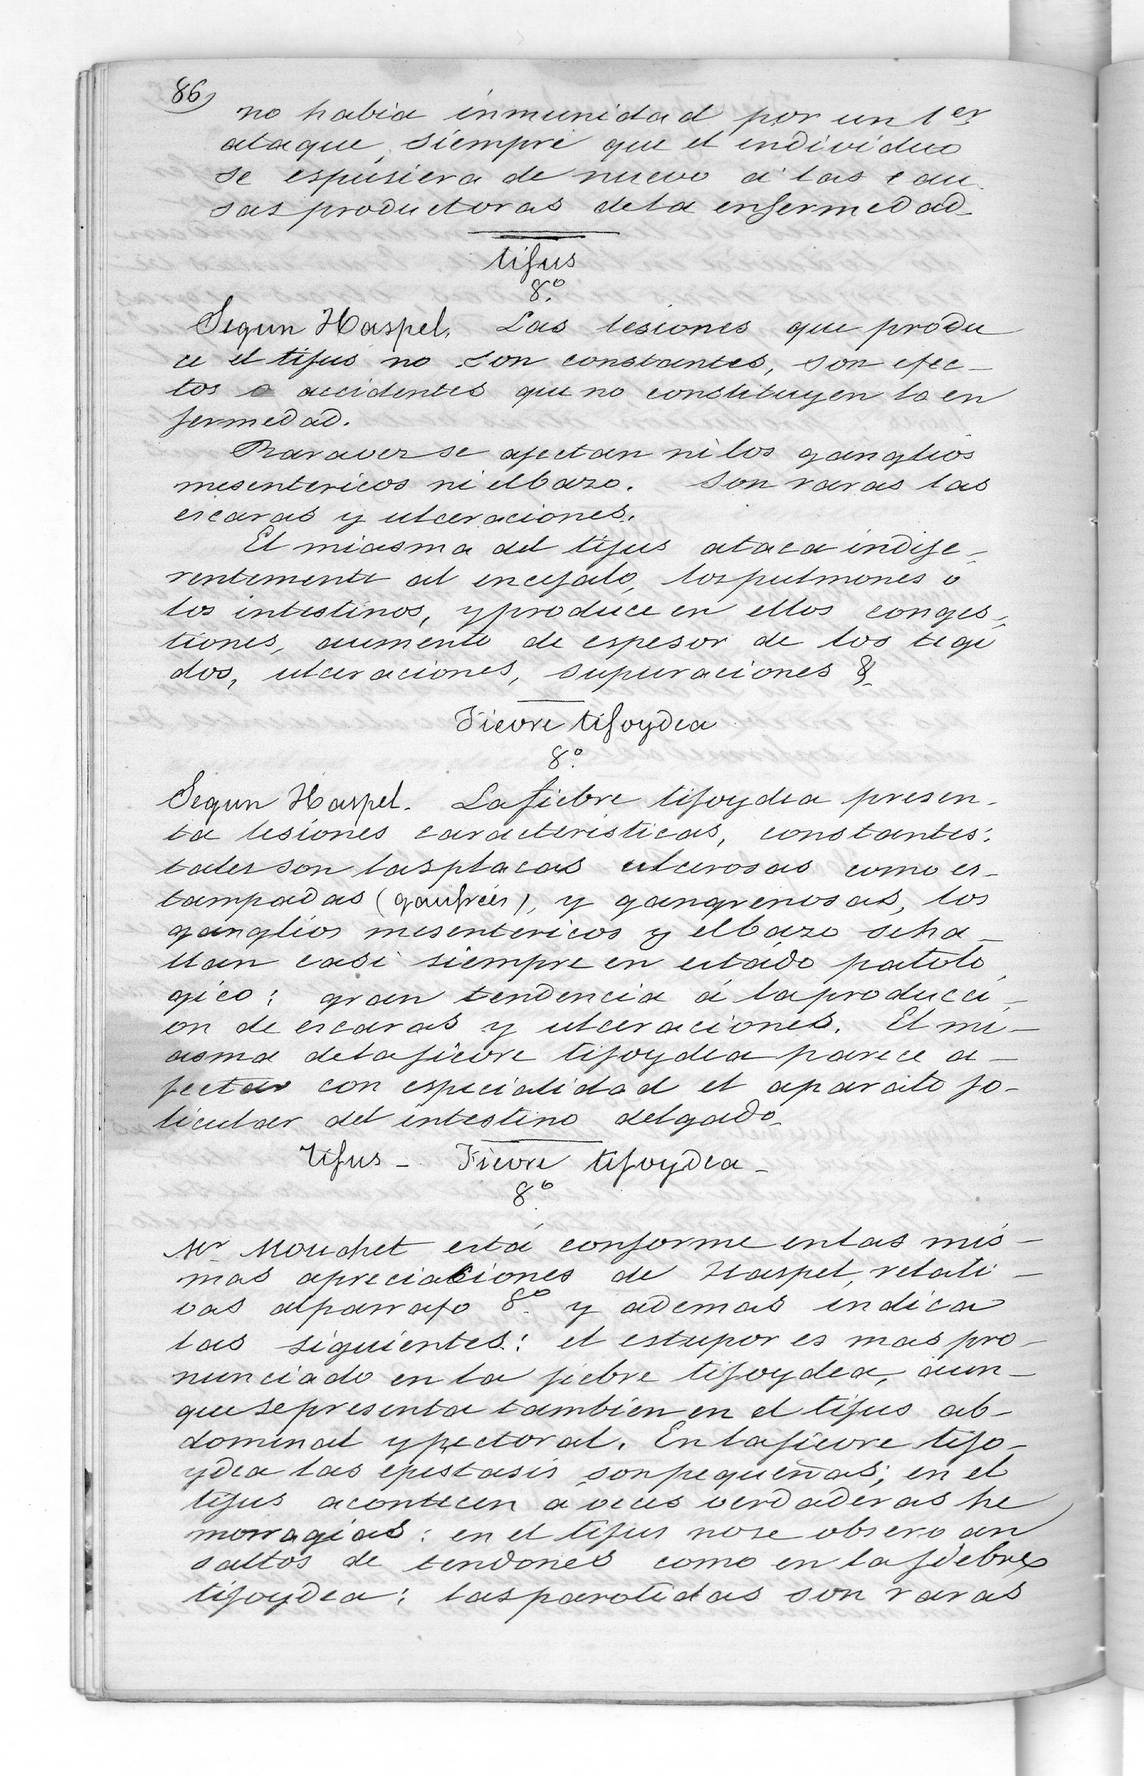 86
no habia inmunidad por un 1er
ataque, siempre que el individuo
se espusiera de nuevo á las cau
sas productoras de la enfermedad_
tifus
8.º
Segun Haspel. Las lesiones que produ
ce el tifus no son constantes, son efec_
tos o accidentes que no constituyen la en
fermedad.
Rara vez se afectan ni los ganglios
mesentericos ni el bazo. Son raras las
escaras y ulceraciones.
El miasma del tifus ataca indife_
rentemente al encefalo, los pulmones ó
los intestinos, y produce en ellos conges_
tiones, aumento de espesor de los tegi
dos, ulceraciones, supuraciones &.
Fievre tifoydea
8.º
Segun Haspel. La fiebre tifoydea presen_
ta lesiones caracteristicas, constantes:
tales son las placas ulcerosas como es_
tampadas (gaufrées), y gangrenosas, los
ganglios mesentericos y el bazo se ha_
llan casi siempre en estado patolo
gico: gran tendencia á la producci_
on de escaras y ulceraciones. El mi_
asma de la fievre tifoydea parece a_
fectar con especialidad el aparato fo_
licular del intestino delgado_
Tifus _ Fievre tifoydea_
8.º
Mr Mouchet está conforme en las mis_
mas apreciaciones de Haspel, relati_
vas al parrafo 8.º y ademas indica
las siguientes: el estupor es mas pro_
nunciado en la fiebre tifoydea, aun_
que se presenta tambien en el tifus ab_
dominal y pectoral. En la fievre tifo_
ydea las epistasis son pequeñas; en el
tifus acontecen a veces verdaderas he
morragias: en el tifus no se observan
saltos de tendones como en la fiebre
tifoydea: las parotidas son raras